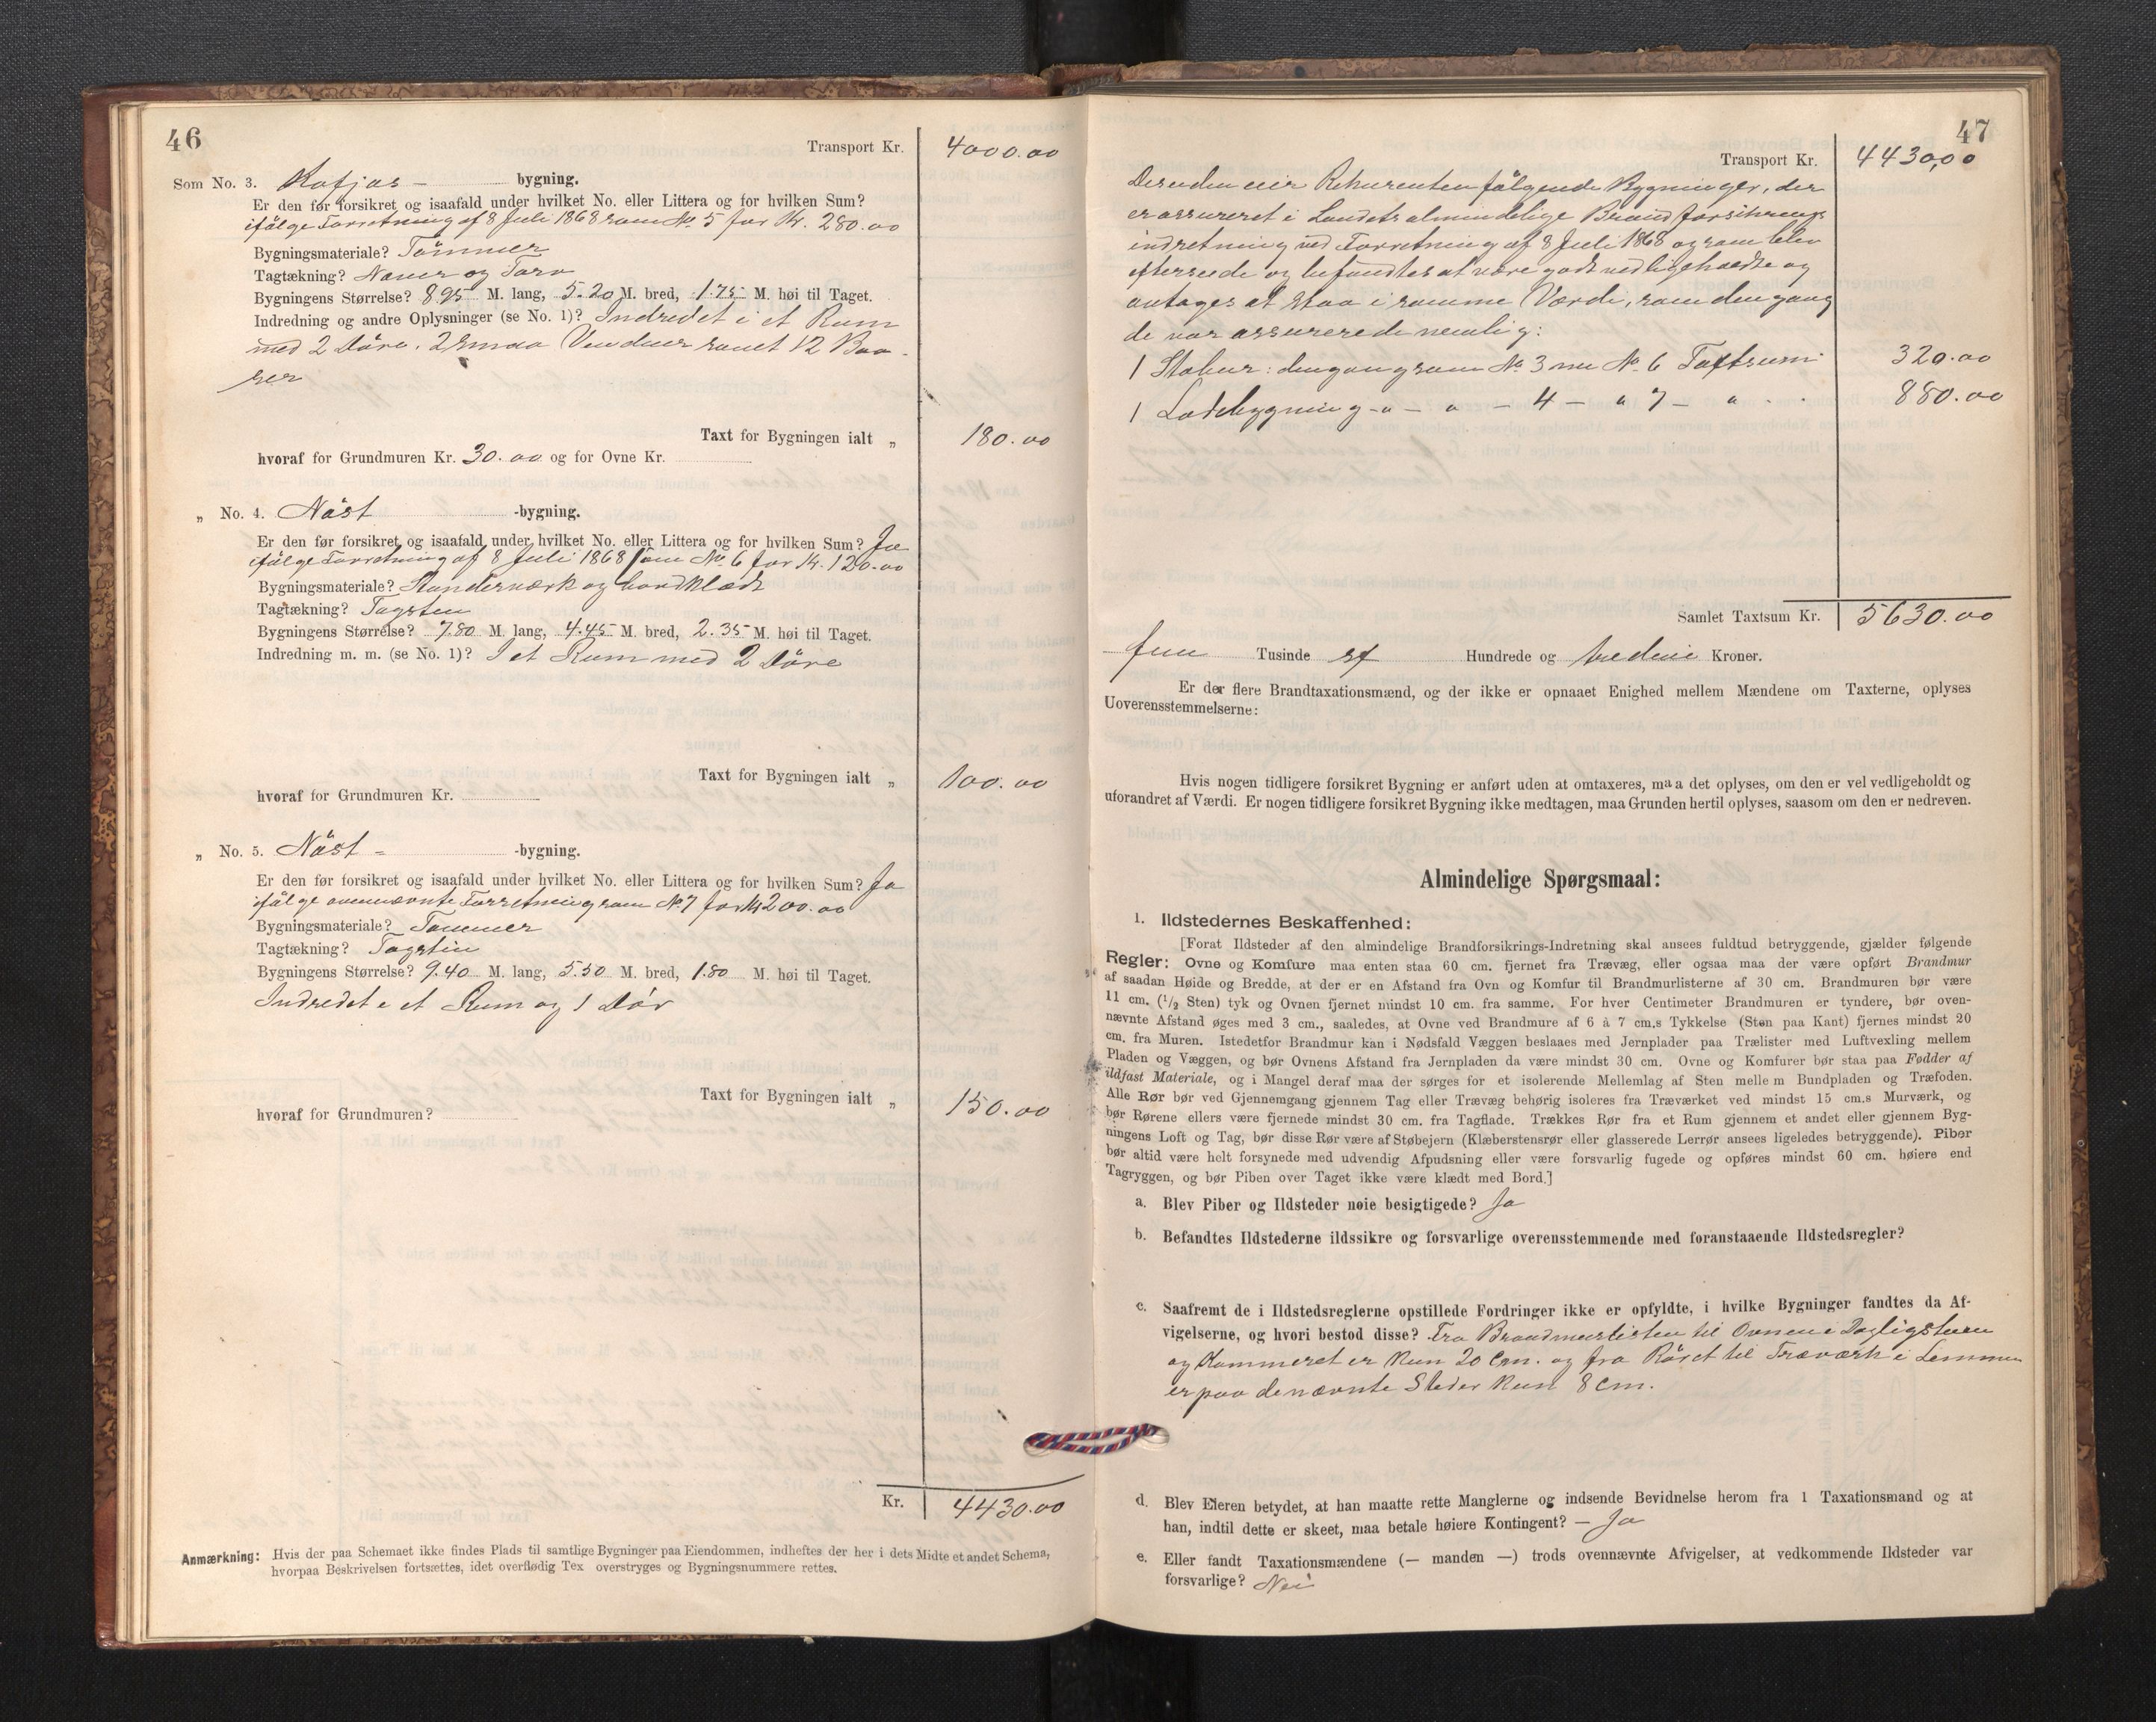 46
Transport Kr. 4000.00
Som No. 3. Kofjøs- bygning.
Er den før forsikret og isaafald under hvilket No. eller Littera og for hvilken Sum?
ifølge Forretning af 8 Juli 1868 som No. 5 for Kr. 280.00
Bygningsmateriale? Tømmer
Tagtækning? Næver og Torv
Bygningens Størrelse? 8.95 M. lang, 5.20 M. bred, 1.75 M. høi til Taget.
Indredning og andre Oplysninger (se No. 1)? Indredet i et Rum
med 2 Døre. 2 smaa Venduer samt 12 Baa-
ser
Taxt for Bygningen ialt „ 180.00
hvoraf for Grundmuren Kr. 30.00 og for Ovne Kr.
„ No. 4. Nøst -bygning.
Er den før forsikret og isaafald under hvilket No. eller Littera og for hvilken Sum? Ja
ifølge Forretning af 8 Juli 1868 som No. 6 for Kr. 120.00
Bygningsmateriale? Standerværk og bordklædt
Tagtækning? Tagsten
Bygningens Størrelse? 7.80 M. lang, 4.45 M. bred, 2.35 M. høi til Taget.
Indredning m. m. (se No. 1)? I et Rum med 2 Døre
Taxt for Bygningen ialt „ 100.00
hvoraf for Grundmuren Kr.
„ No. 5. Nøst- -bygning.
Er den før forsikret og isaafald under hvilket No. eller Littera og for hvilken Sum? Ja
ifølge ovennævnte Forretning som No. 7 for Kr 200.00
Bygningsmateriale? Tømmer
Tagtækning? Tagsten
Bygningens Størrelse? 9.40 M. lang, 5.50 M. bred, 1.80 M. høi til Taget.
Indredet i et Rum og 1 Dør
Taxt for Bygningen ialt „ 150.00
hvoraf for Grundmuren?
Kr. 4430.00
Anmærkning: Hvis der paa Schemaet ikke findes Plads til samtlige Bygninger paa Eiendommen, indheftes der her i dets Midte et andet Schema,
hvorpaa Beskrivelsen fortsættes, idet overflødig Tex overstryges og Bygningsnummere rettes.
47
Transport Kr. 4430,00
Desuden eier Rekurenten følgende Bygninger, der
er assureret i Landets almindelige Brandforsikrings
indretning ved Forretning af 8 Juli 1868 og som blev
efterseede og befandtes at være godt vedligeholdte og
antages at staa i samme Værdi, som dengang
de var assurerede nemlig:
1 Stabur: dengang som No. 3 nu No. 6 Taxtsum 320.00
1 Ladebygning - " - " - 4 - " 7 - " 880.00
Samlet Taxtsum Kr. 5630.00
fem Tusinde sex Hundrede og tredive Kroner.
Er der flere Brandtaxationsmænd, og der ikke er opnaaet Enighed mellem Mændene om Taxterne, oplyses
Uoverensstemmelserne:
Hvis nogen tidligere forsikret Bygning er anført uden at omtaxeres, maa det oplyses, om den er vel vedligeholdt og
uforandret af Værdi. Er nogen tidligere forsikret Bygning ikke medtagen, maa Grunden hertil oplyses, saasom om den er nedreven.
Almindelige Spørgsmaal:
1. Ildstedernes Beskaffenhed:
[Forat Ildsteder af den almindelige Brandforsikrings-Indretning skal ansees fuldtud betryggende, gjælder følgende
Regler: Ovne og Komfure maa enten staa 60 cm. fjernet fra Trævæg, eller ogsaa maa der være opført Brandmur
af saadan Høide og Bredde, at der er en Afstand fra Ovn og Komfur til Brandmurlisterne af 30 cm. Brandmuren bør være
11 cm. (1/2 Sten) tyk og Ovnen fjernet mindst 10 cm. fra samme. For hver Centimeter Brandmuren er tyndere, bør oven-
nævnte Afstand øges med 3 cm., saaledes, at Ovne ved Brandmure af 6 à 7 cm.s Tykkelse (Sten paa Kant) fjernes mindst 20
cm. fra Muren. Istedetfor Brandmur kan i Nødsfald Væggen beslaaes med Jernplader paa Trælister med Luftvexling mellem
Pladen og Væggen, og bør Ovnens Afstand fra Jernpladen da være mindst 30 cm. Ovne og Komfurer bør staa paa Fødder af
ildfast Materiale, og i Mangel deraf maa der sørges for et isolerende Mellemlag af Sten mellem Bundpladen og Træfoden.
Alle Rør bør ved Gjennemgang gjennem Tag eller Trævæg behørig isoleres fra Træværket ved mindst 15 cm.s Murværk, og
bør Rørene ellers være fjernede mindst 30 cm. fra Tagflade. Trækkes Rør fra et Rum gjennem et andet eller gjennem Byg-
ningens Loft og Tag, bør disse Rør være af Støbejern (Klæberstensrør eller glasserede Lerrør ansees ligeledes betryggende). Piber
bør altid være helt forsynede med udvendig Afpudsning eller være forsvarlig fugede og opføres mindst 60 cm. høiere end
Tagryggen, og bør Piben over Taget ikke være klædt med Bord.]
a. Blev Piber og Ildsteder nøie besigtigede? Ja
b. Befandtes Ildstederne ildssikre og forsvarlige overensstemmende med foranstaaende Ildstedsregler?
c. Saafremt de i Ildstedsreglerne opstillede Fordringer ikke er opfyldte, i hvilke Bygninger fandtes da Af-
vigelserne, og hvori bestod disse? Fra Brandmurlisten til Ovnene i Dagligstuen
og Kammeret er kun 20 Cm. og fra Røret til Træværk i Lemmen
er paa de nævnte Steder kun 8 cm.
d. Blev Eieren betydet, at han maatte rette Manglerne og indsende Bevidnelse herom fra 1 Taxationsmand og at
han, indtil dette er skeet, maa betale høiere Kontingent? — Ja
e. Eller fandt Taxationsmændene (— manden —) trods ovennævnte Afvigelser, at vedkommende Ildsteder var
forsvarlige? Nei